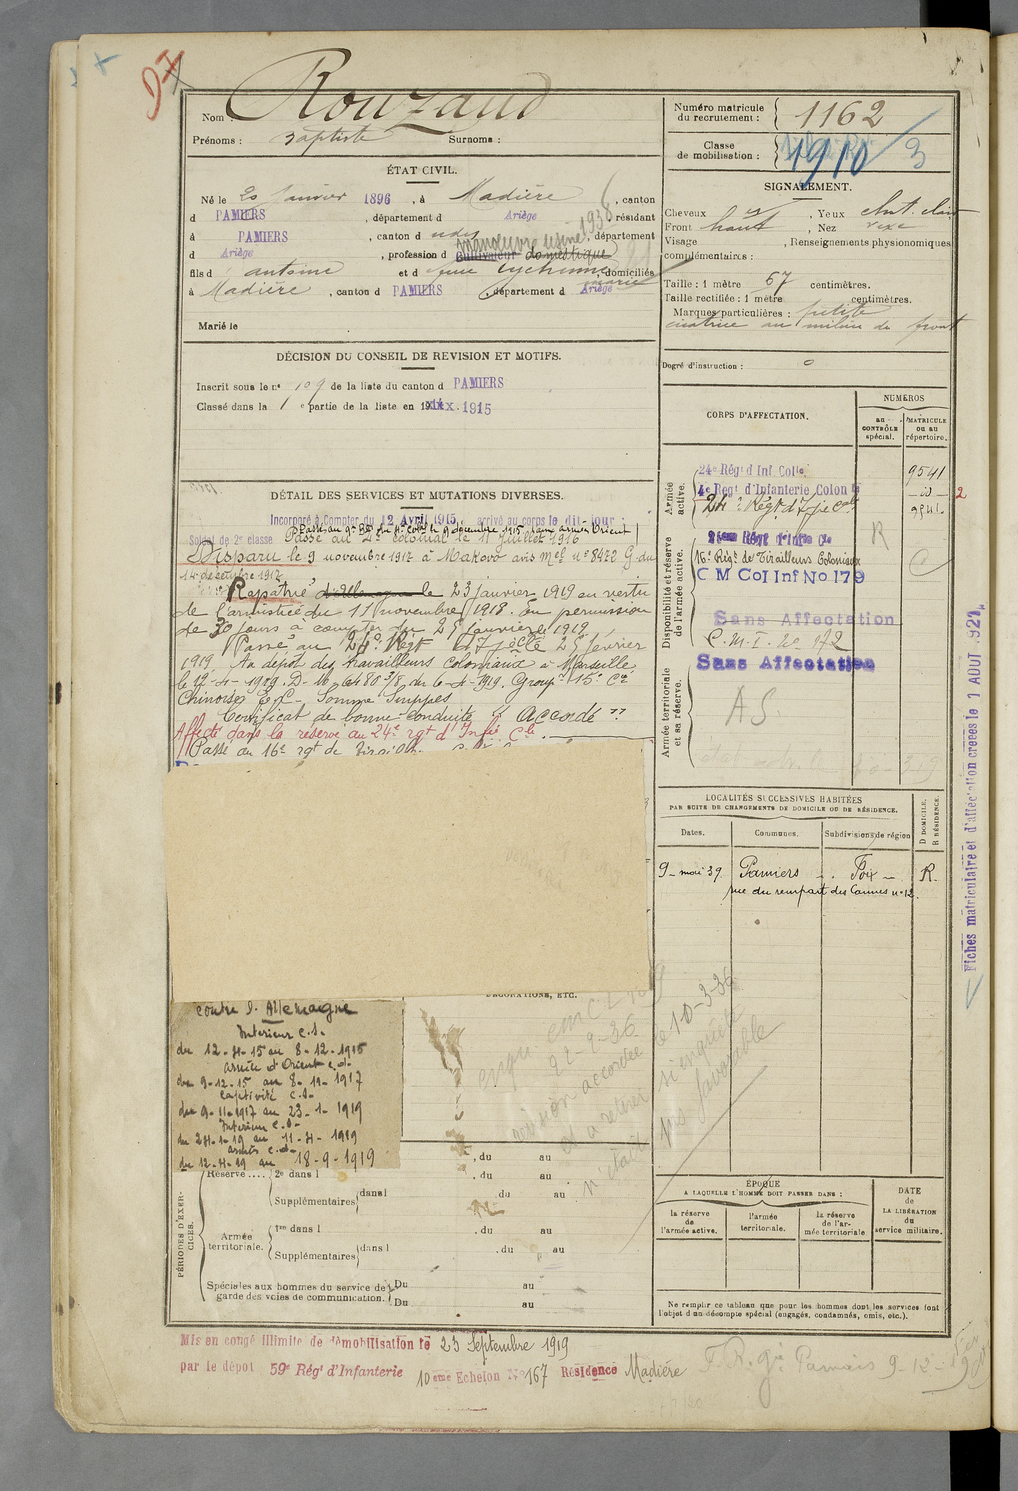 Nom : Rouzaud
Prénoms : Baptiste Surnoms :
Numéro matricule du recrutement : 1162
Classe de mobilisation : 1910 / 3
ÉTAT CIVIL.
Né le 20 Janvier 1896, à Madière, canton
d PAMIERS, département d Ariège résidant
à PAMIERS, canton d udis, département
d Ariège, profession d cultivateur domestique
manœuvre usine 1938
fils d antoine et d domiciliés
à Madière, canton d PAMIERS, département d Ariège
marié
Marié le
SIGNALEMENT.
Cheveux, Yeux chat. clair
Front haut, Nez vexe
Visage, Renseignements physionomiques
complémentaires :
Taille : 1 mètre 67 centimètres.
Taille rectifiée : 1 mètre centimètres.
Marques particulières : petite
cicatrice au milieu du front
Degré d'instruction : 0
DÉCISION DU CONSEIL DE REVISION ET MOTIFS.
Inscrit sous le n° 109 de la liste du canton d PAMIERS
Classé dans la 1 e partie de la liste en 1915
CORPS D'AFFECTATION.
NUMÉROS
au CONTRÔLE spécial.
MATRICULE ou au répertoire.
Armée active.
24e Régt d Inf. Colle. 9541
4e Regt d'Infanterie Colon le — id —
24e Régt d'Ifie Cole 9541
2
Disponibilité et réserve de l'armée active.
R
16e Régt de Tirailleurs Coloniaux
C M Col Inf No 179
Sans Affectation
C. M. I. no 172
Armée territoriale et sa réserve.
Sans Affectation
A S.
DÉTAIL DES SERVICES ET MUTATIONS DIVERSES.
Incorporé à Compter du 12 Avril 1915, arrivé au corps le dit jour
Passé au 4e Rgt du Ie Cole le 9 décembre 1915 dans armée Orient
Soldat de 2e classe Passé au 4e colonial le 11 Juillet 1916
Disparu le 9 novembre 1917 à Makovo avis Mel n° 8422 G du
14 décembre 1917
Rapatrié d'Allemagne le 23 janvier 1919 en vertu
de l'armistice du 11 novembre 1918. en permission
de 30 jours à compter du 25 janvier 1919
Passé au 24e Régt d'Ifie Cle 25 février
1919. Au dépot des travailleurs Coloniaux à Marseille
le 12-4-1919. D. M. 6480 3/8 du 6-4-1919. Groupt 15e Cie
Chinoises T.C. Somme Suippes
Certificat de bonne conduite "Accordé"
Affecté dans la réserve au 24e rgt d'Infie Cle
Passé au 16e rgt de Tiraill.
LOCALITÉS SUCCESSIVES HABITÉES
PAR SUITE DE CHANGEMENTS DE DOMICILE OU DE RÉSIDENCE.
Dates. Communes. Subdivisions de région D DOMICILE. R RÉSIDENCE.
9 mai 39. Pamiers Foix R.
rue du rempart des Carmes n° 12.
DÉCORATIONS, ETC.
contre l'Allemagne
Intérieur C.S.
du 12-4-15 au 8-12-1915
armée d'Orient c.d.
du 9-12-15 au 8-11-1917
Captivité C.S.
du 9-11-1917 au 23-1-1919
Intérieur C.S.
du 24-1-19 au 11-4-1919
armées c.d.
du 12-4-19 au 18-9-1919
22-9-36
le 10-3-36
si enquête
n'était pas favorable
PÉRIODES D'EXERCICES.
, du au
Réserve .... 2e dans l , du au
Supplémentaires dans l , du au
Armée territoriale. 1re dans l , du au
Supplémentaires dans l , du au
Spéciales aux hommes du service de garde des voies de communication. Du au
Du au
ÉPOQUE
A LAQUELLE L'HOMME DOIT PASSER DANS :
la réserve de l'armée active.
l'armée territoriale.
la réserve de l'armée territoriale
DATE de LA LIBÉRATION du service militaire.
Ne remplir ce tableau que pour les hommes dont les services font
l'objet d'un décompte spécial (engagés, condamnés, omis, etc.).
Mis en congé illimité de démobilisation le 23 Septembre 1919
par le dépot 59e Régt d'Infanterie 10 eme Echelon N° 167 Résidence Madière
F. R. Gie Pamiers 9-12-
Fiches matriculaire et d'affectation créées le 1 AOUT 1927